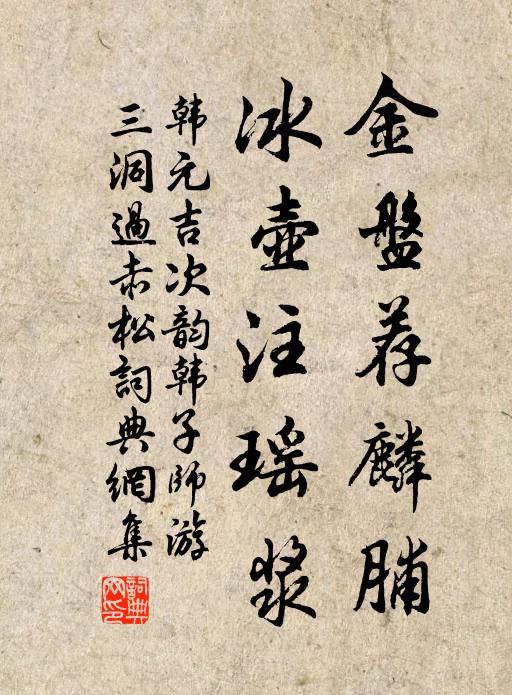 金盤荐麟脯
冰壺注瑶漿
韩元吉次韵韩子師游
三洞過赤松詞典網集
詞典网印